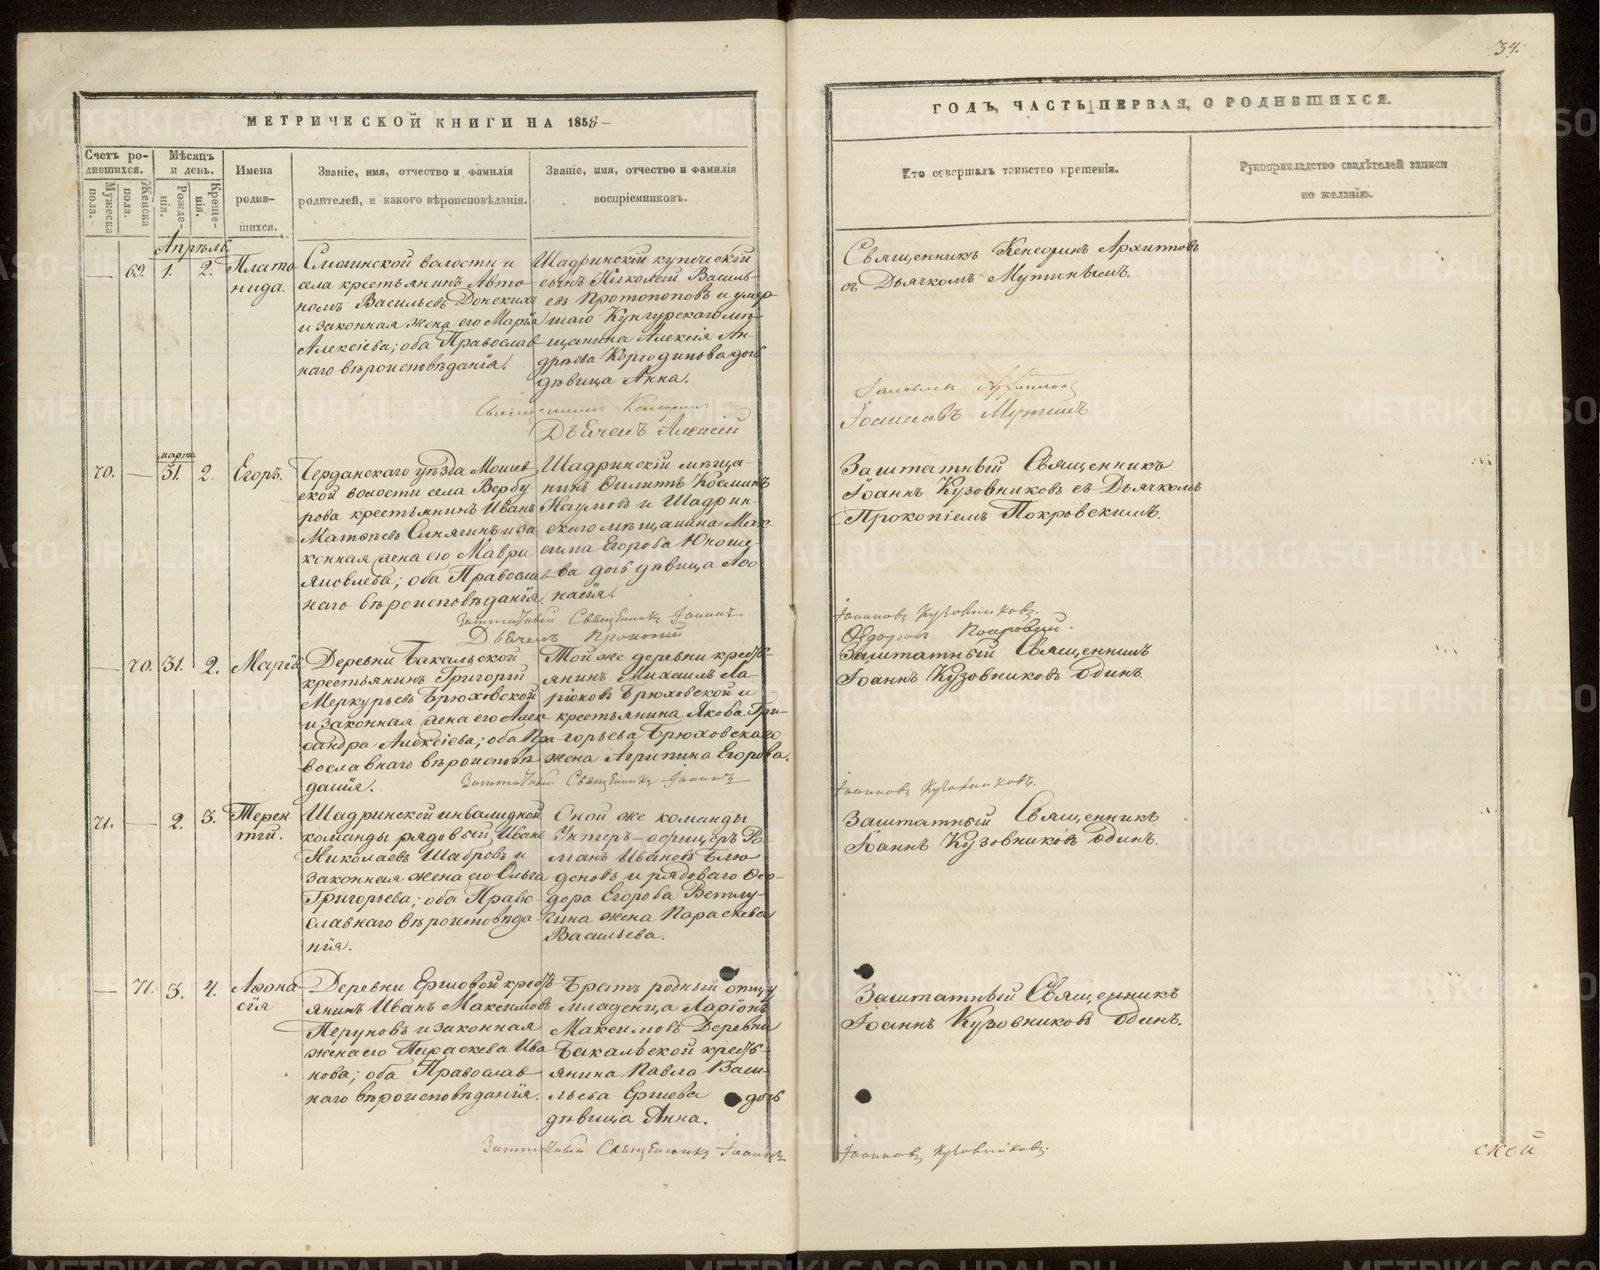 34.
МЕТРИЧЕСКОЙ КНИГИ НА 1858
ГОДЪ, ЧАСТЬ ПЕРВАЯ, О РОДИВШИХСЯ.
Счетъ родившихся.
Мужеска пола.
Женска пола.
Мѣсяцъ и день.
Рожденія.
Крещенія.
Имена
родив-
шихся.
Званіе, имя, отчество и фамилія
родителей, и какого вѣроисповѣданія.
Званіе, имя, отчество и фамилія
воспріемниковъ.
Кто совершалъ таинство крещенія.
Рукоприкладство свидѣтелей записи
по желанію.
Апрѣль
— 69. 1. 2.
Плато
нида.
Смолинской волости и
села крестьянинъ Авто-
номъ Васильевъ Донскихъ
и законная жена его Марія
Алексіева; оба Православ
наго вѣроисповѣданія.
Шадринскій купеческій
сынъ Николай Василь-
евъ Протопоповъ и умер-
шаго Кунгурскаго мѣ-
щанина Алексія Ан-
дрѣева дочь
дѣвица Анна.
Священникъ Архиповъ
съ Дьячкомъ Мутинымъ.
Дьячекъ Алексій
марта
70. — 31. 2.
Егоръ.
Чердынскаго уѣзда Мошев
ской волости села Вербу
рова крестьянинъ Иванъ
Матвѣевъ Синягинъ и за
конная жена его Мавра
Яковлева; оба Православ
наго вѣроисповѣданія.
Шадринскій мѣща-
нинъ Филиппъ Косминъ
Наумовъ и Шадрин
скаго мѣщанина Мак-
сима Егорова Юноше-
ва дочь дѣвица Афо
насія.
Заштатный Священникъ
Іоаннъ Кузовниковъ съ Дьячкомъ
Прокопіемъ Покровскимъ.
Заштатный Священникъ Іоаннъ
Іоанновъ Кузовниковъ.
Дьячекъ Прокопій
— 70. 31. 2.
Марія
Деревни Бакальской
крестьянинъ Григорій
Меркурьевъ Брюховской
и законная жена его Алек
сандра Алексіева; оба Пра
вославнаго вѣроисповѣ
данія.
Той же деревни кресть-
янинъ Михаилъ Ла-
ріоновъ Брюховской и
крестьянина Якова Гри-
горьева Брюховскаго
жена Агрипина Егорова.
Заштатный Священникъ
Іоаннъ Кузовниковъ одинъ.
Заштатный Священникъ Іоаннъ
Іоанновъ Кузовниковъ.
71. — 2. 3.
Терен
тій.
Шадринской инвалидной
команды рядовый Иванъ
Николаевъ Шабровъ и
законная жена его Ольга
Григорьева; оба Право
славнаго вѣроисповѣда-
нія.
Оной же команды
Унтеръ-офицеръ Ро-
манъ Ивановъ Блю
деновъ и рядоваго Фео-
дора Егорова Ветлу-
гина жена Параскева
Васильева.
Заштатный Священникъ
Іоаннъ Кузовниковъ одинъ.
— 71. 3. 4.
Афона
сія
Деревни Ершовой кресть
янинъ Иванъ Максимовъ
Перуновъ и законная
жена его Параскева Ива
нова; оба Православ
наго вѣроисповѣданія.
Братъ родный отцу
младенца Ларіонъ
Максимовъ Деревни
Бакальской кресть-
янина Павла Васи-
льева Ершева дочь
дѣвица Анна.
Заштатный Священникъ
Іоаннъ Кузовниковъ одинъ.
Заштатный Священникъ Іоаннъ
Іоанновъ Кузовниковъ.
ской
METRIKI.GASO-URAL.RU